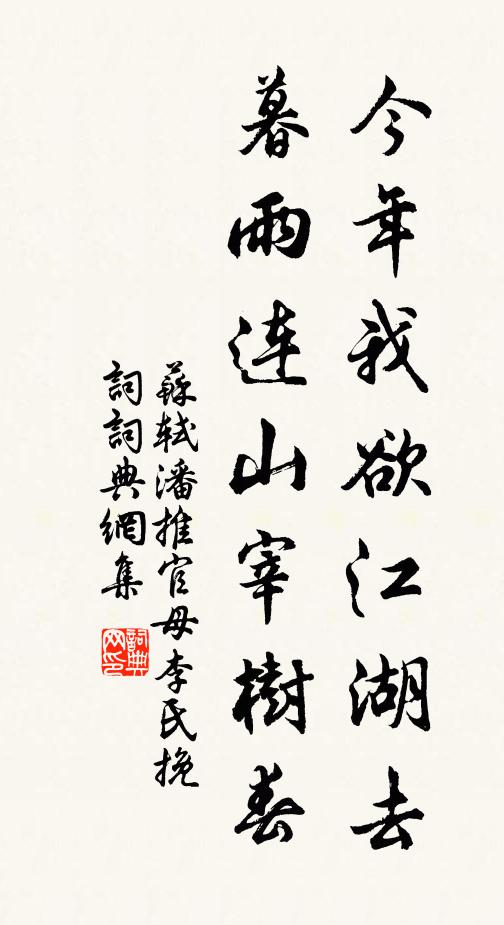 今年我欲江湖去
暮雨連山宰樹春
蘇軾潘推官母李氏挽
詞詞典網集
詞典
网印